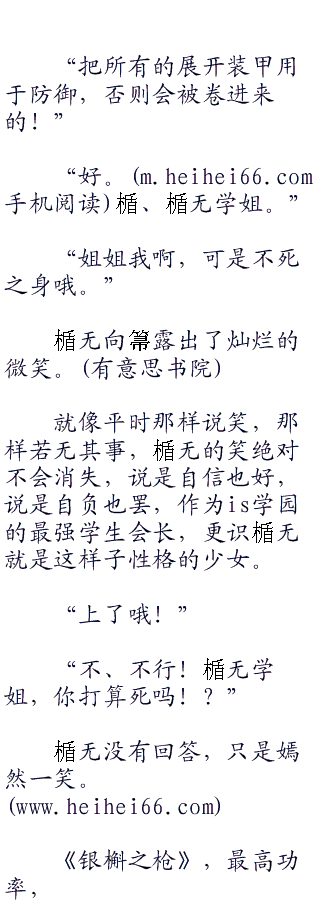 “把所有的展开装甲用
于防御，否则会被卷进来
的！”
“好。(m.heihei66.com
手机阅读)楯、楯无学姐。”
“姐姐我啊，可是不死
之身哦。”
楯无向箒露出了灿烂的
微笑。(有意思书院)
就像平时那样说笑，那
样若无其事，楯无的笑绝对
不会消失，说是自信也好，
说是自负也罢，作为is学园
的最强学生会长，更识楯无
就是这样子性格的少女。
“上了哦！”
“不、不行！楯无学
姐，你打算死吗！？”
楯无没有回答，只是嫣
然一笑。
(www.heihei66.com)
《银槲之枪》，最高功
率，